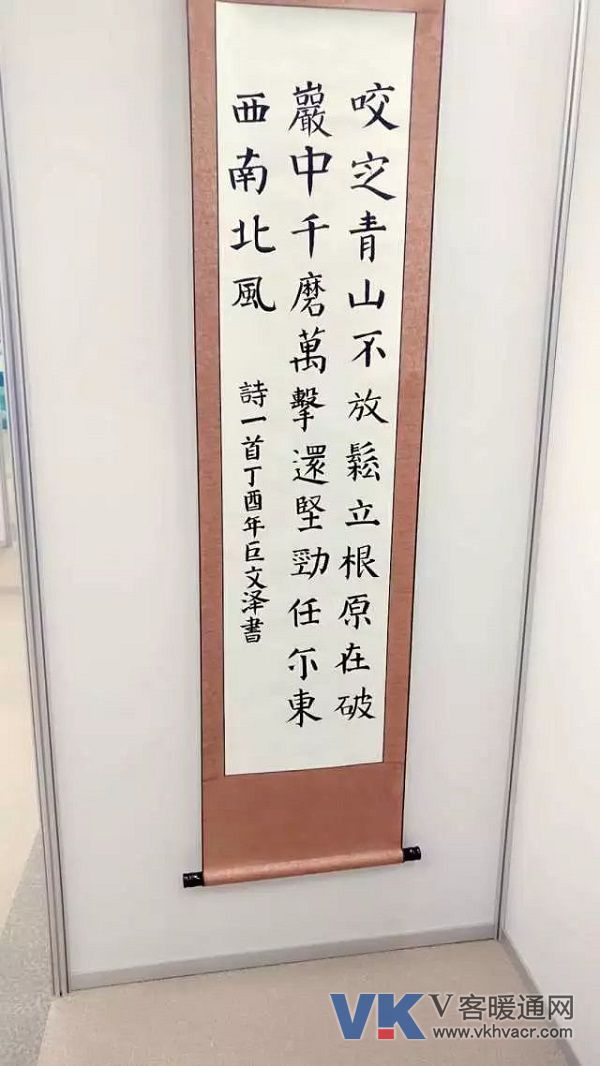 咬定青山不放鬆立根原在破
巖中千磨萬擊還堅勁任尓東
西南北風
詩一首丁酉年巨文泽書
VK V客暖通网
www.vkhvacr.com